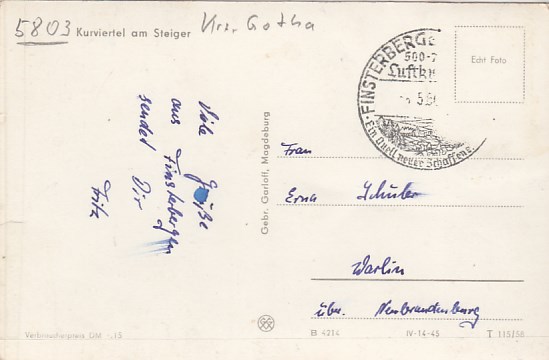 5803 Kurviertel am Steiger Krs. Gotha
Viele Grüße
aus Finsterbergen
sendet Dir
Fritz
Gebr. Garloff, Magdeburg
FINSTERBERGE
500-7
Luftku
5.
Ein Quell neuer Schaffens
Echt Foto
Frau
Erna Schuber
Warlin
über. Neubrandenburg
Verbraucherpreis DM -,15
B 4214 IV-14-45 T 115/58